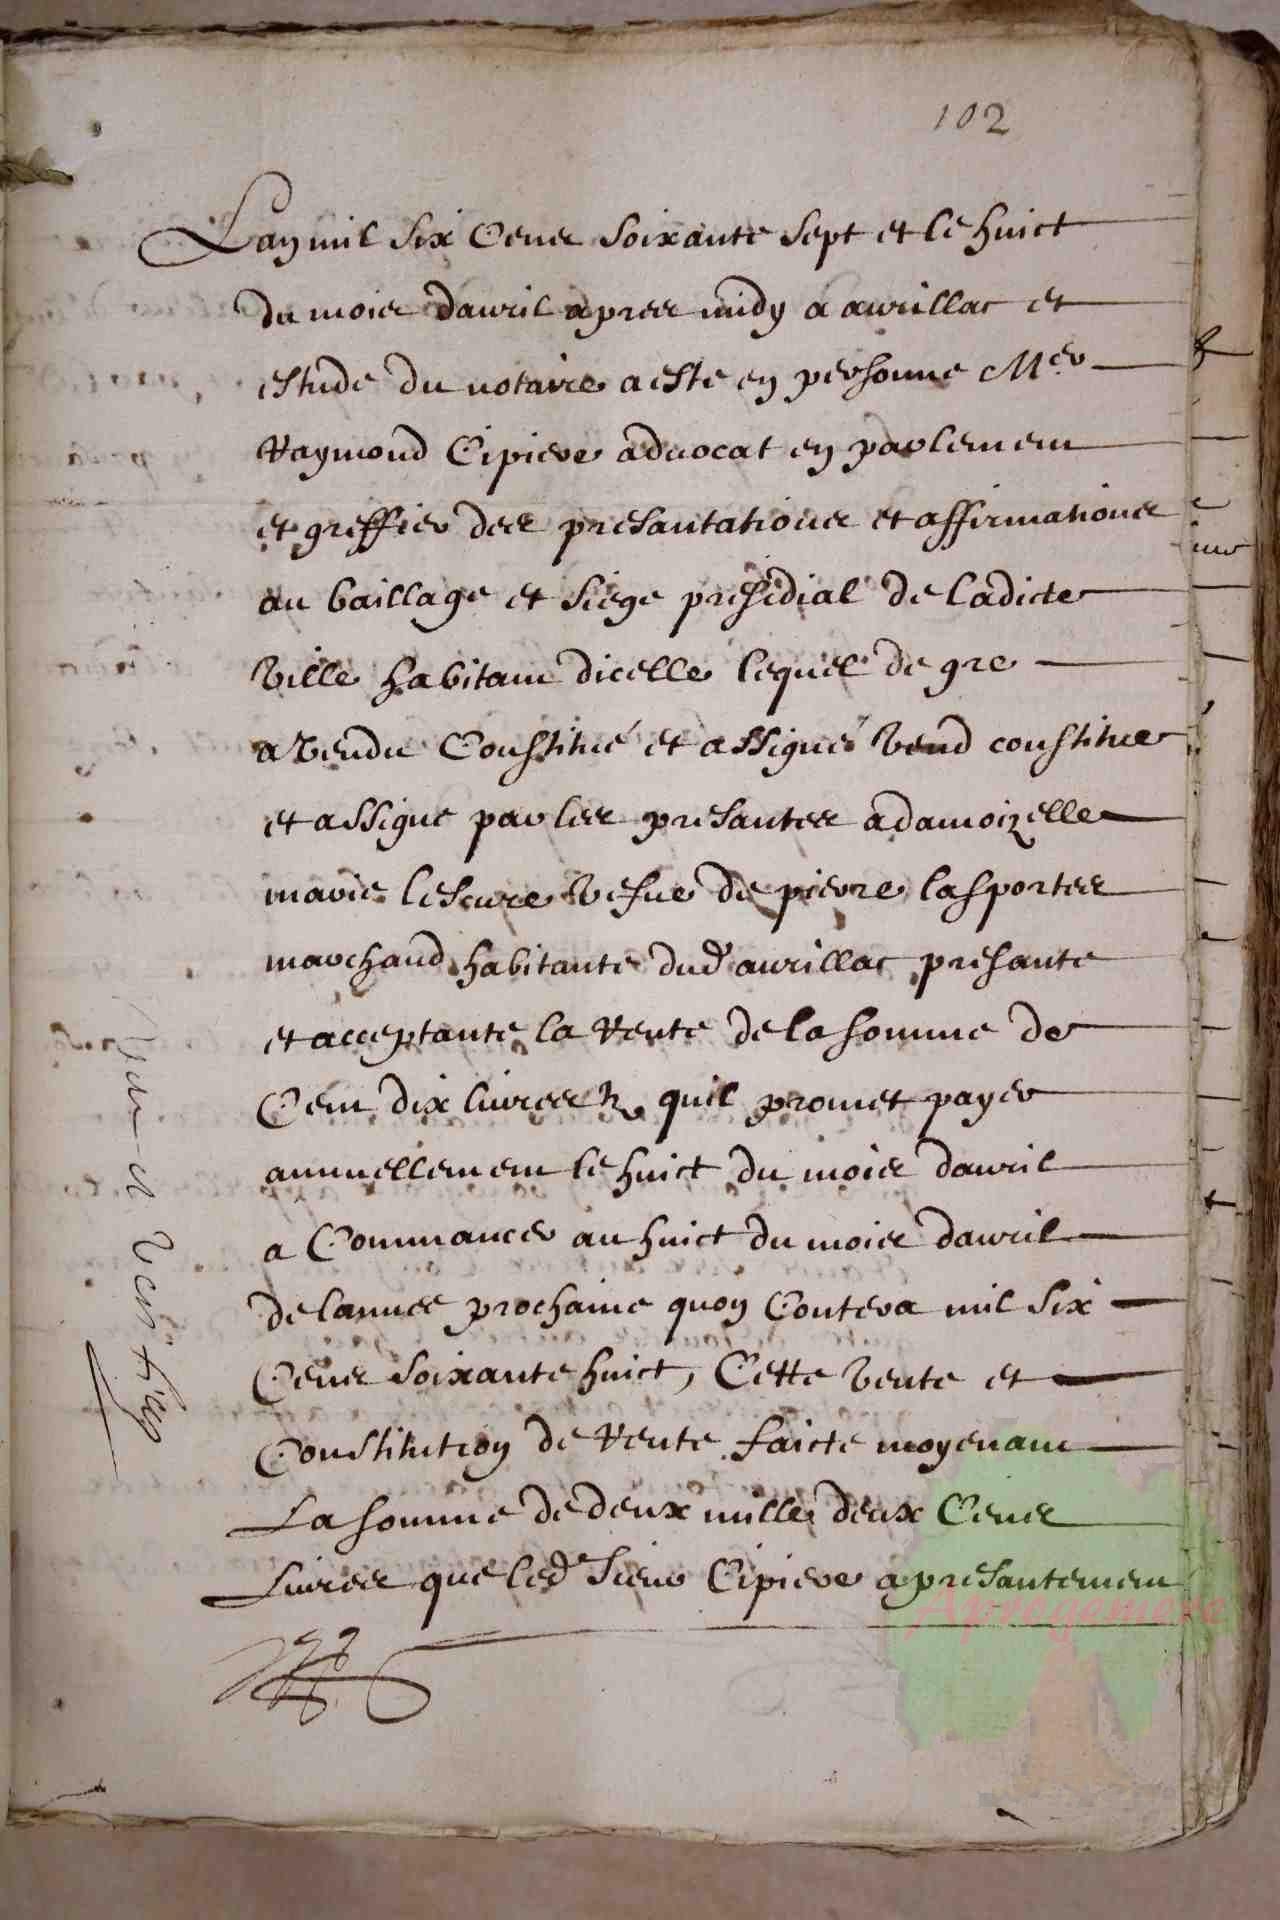 102
Lan mil six cens soixante sept et le huict
du mois dauril apres midy a aurillac et
estude du notaire a este en personne Mer
Raymond Cipiere aduocat en parlement
et greffier des presantations et affirmations
au baillage et siege presidial de ladicte
ville habitant dicelle lequel de gre
a vendu constitué et assigné vend constitue
et assigne par les presantes a damoizelle
marie lescure vefue de pierre lasportes
marchand habitante dud aurillac presante
et acceptante la rente de la somme de
Cent dix liures quil promet payer
annuellement le huict du moiis dauril
a Commancer au huict du mois dauril
de lannee prochaine quon Contera mil six
Cens soixante huict, Cette vente et
Constitution de rente faicte moyenant
La somme de deux mille deux Cens
Liures que led Sieur Cipiere a presantement
Aprogemere